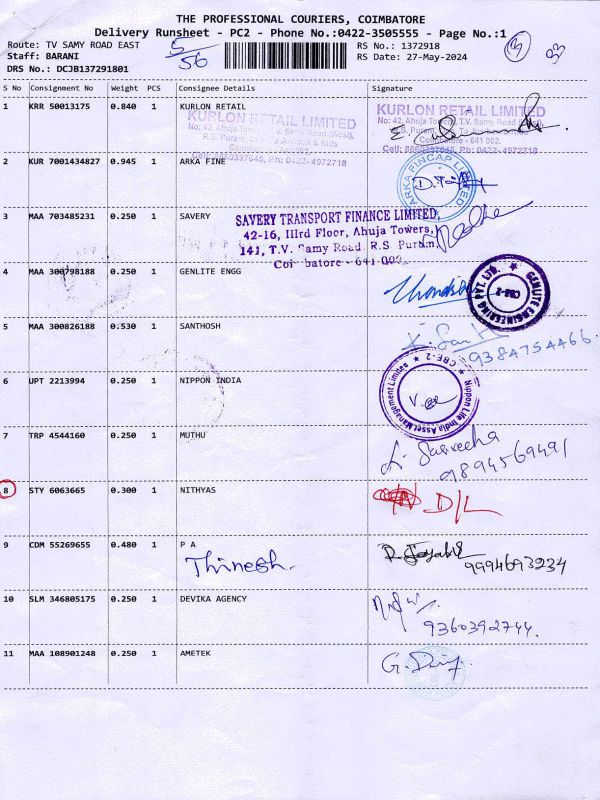 THE PROFESSIONAL COURIERS, COIMBATORE
Delivery Runsheet - PC2 - Phone No.:0422-3505555 - Page No.:1
Route: TV SAMY ROAD EAST
RS No.: 1372918
Staff: BARANI
RS Date: 27-May-2024
DRS No.: DCJB137291801
5/56
3
33
S No Consignment No Weight PCS Consignee Details Signature
1 KRR 50013175 0.840 1 KURLON RETAIL
KURLON RETAIL LIMITED
No: 42, Ahuja Towers, T.V. Samy Road (West),
R.S. Puram,
Coimbatore - 641 002.
Cell: 8660397645, Ph: 0422-4972718
2 KUR 7001434827 0.945 1 ARKA FINE
ARKA FINCAP LIMITED
3 MAA 703485231 0.250 1 SAVERY
SAVERY TRANSPORT FINANCE LIMITED,
42-16, IIIrd Floor, Ahuja Towers,
141, T.V. Samy Road, R.S Puram,
Coimbatore - 641-002.
4 MAA 300798188 0.250 1 GENLITE ENGG
GENLITE ENGINEERING PVT. LTD.
CBE-2
5 MAA 300826188 0.530 1 SANTHOSH
9384754466.
6 UPT 2213994 0.250 1 NIPPON INDIA
Nippon Life India Asset Management Limited
CBE-2
7 TRP 4544160 0.250 1 MUTHU
9894569491
8 STY 6063665 0.300 1 NITHYAS
D/L
9 CDM 55269655 0.480 1 P A
Thinesh.
9994693234
10 SLM 346805175 0.250 1 DEVIKA AGENCY
9360392744.
11 MAA 108901248 0.250 1 AMETEK